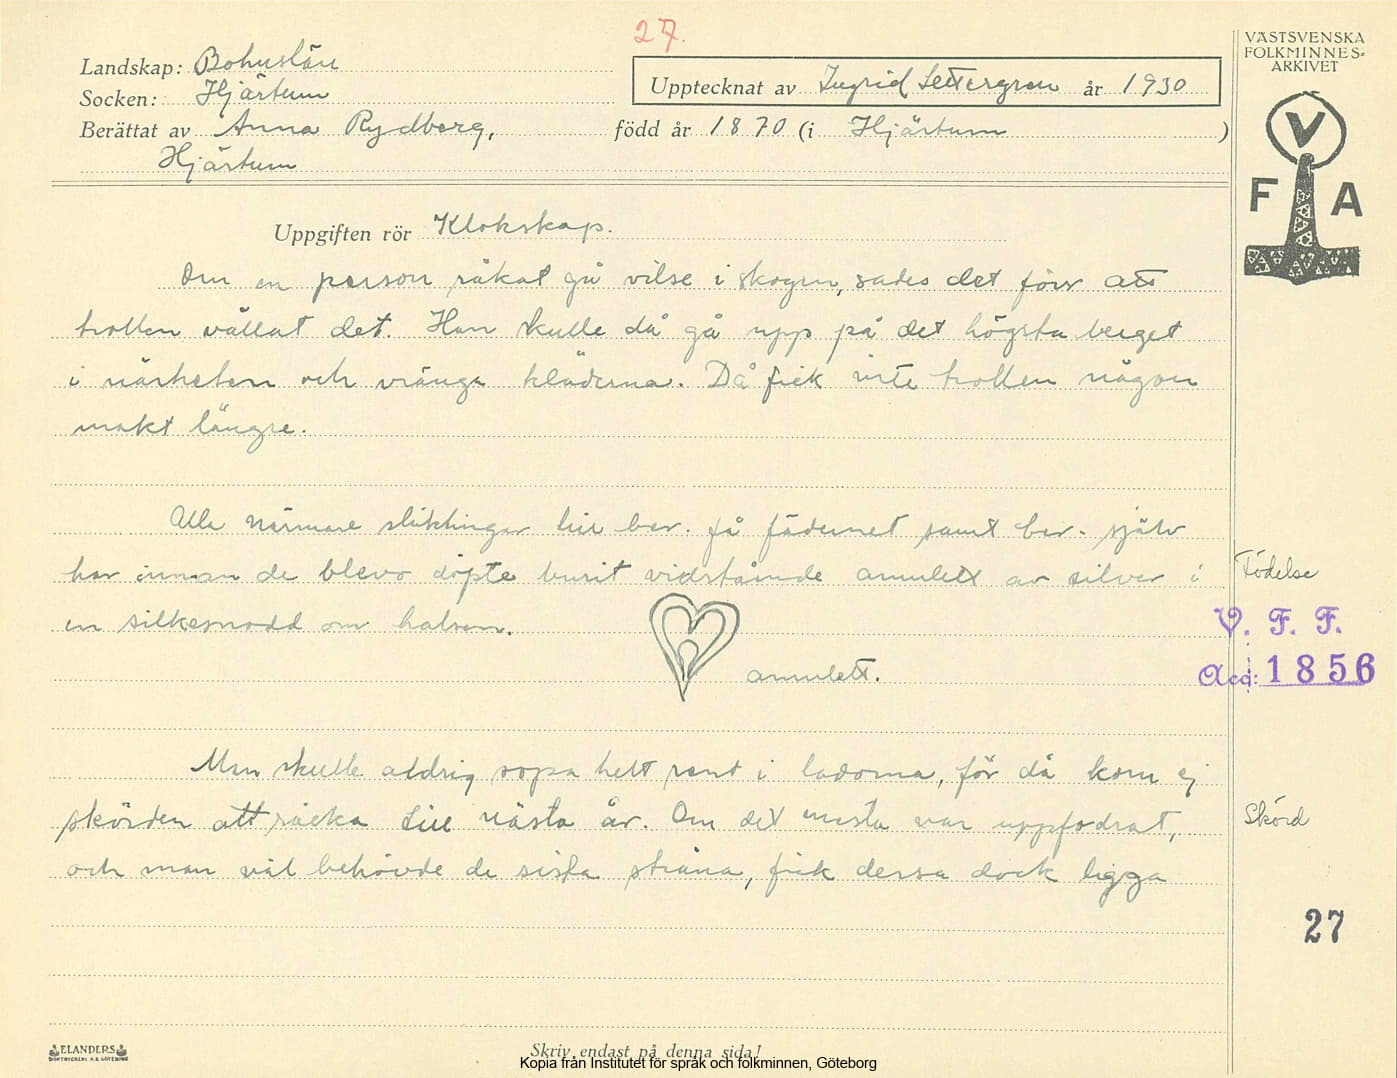 27.
VÄSTSVENSKA
FOLKMINNES-
ARKIVET
V
F A
Landskap: Bohuslän
Socken: Hjärtum
Upptecknat av Ingrid Settergren år 1930
Berättat av Anna Rydberg, född år 1870 (i Hjärtum )
Hjärtum
Uppgiften rör Klokskap.
Om en person råkat gå vilse i skogen, sades det förr att
trollen vållat det. Han skulle då gå upp på det högsta berget
i närheten och vränga kläderna. Då fick inte trollen någon
makt längre.
Alla närmare släktingar till ber. på fädernet samt ber. själv
har innan de blevo döpte burit vidstående amulett av silver i
en silkesnodd om halsen.
Födelse
V. F. F.
Acc: 1856
amulett.
Man skulle aldrig sopa helt rent i ladorna, för då kom ej
skörden att räcka till nästa år. Om det mesta var uppfodrat,
och man väl behövde de sista stråna, fick dessa dock ligga
Skörd
27
ELANDERS
BOKTRYCKERI A.B. GÖTEBORG
Skriv endast på denna sida!
Kopia från Institutet för språk och folkminnen, Göteborg